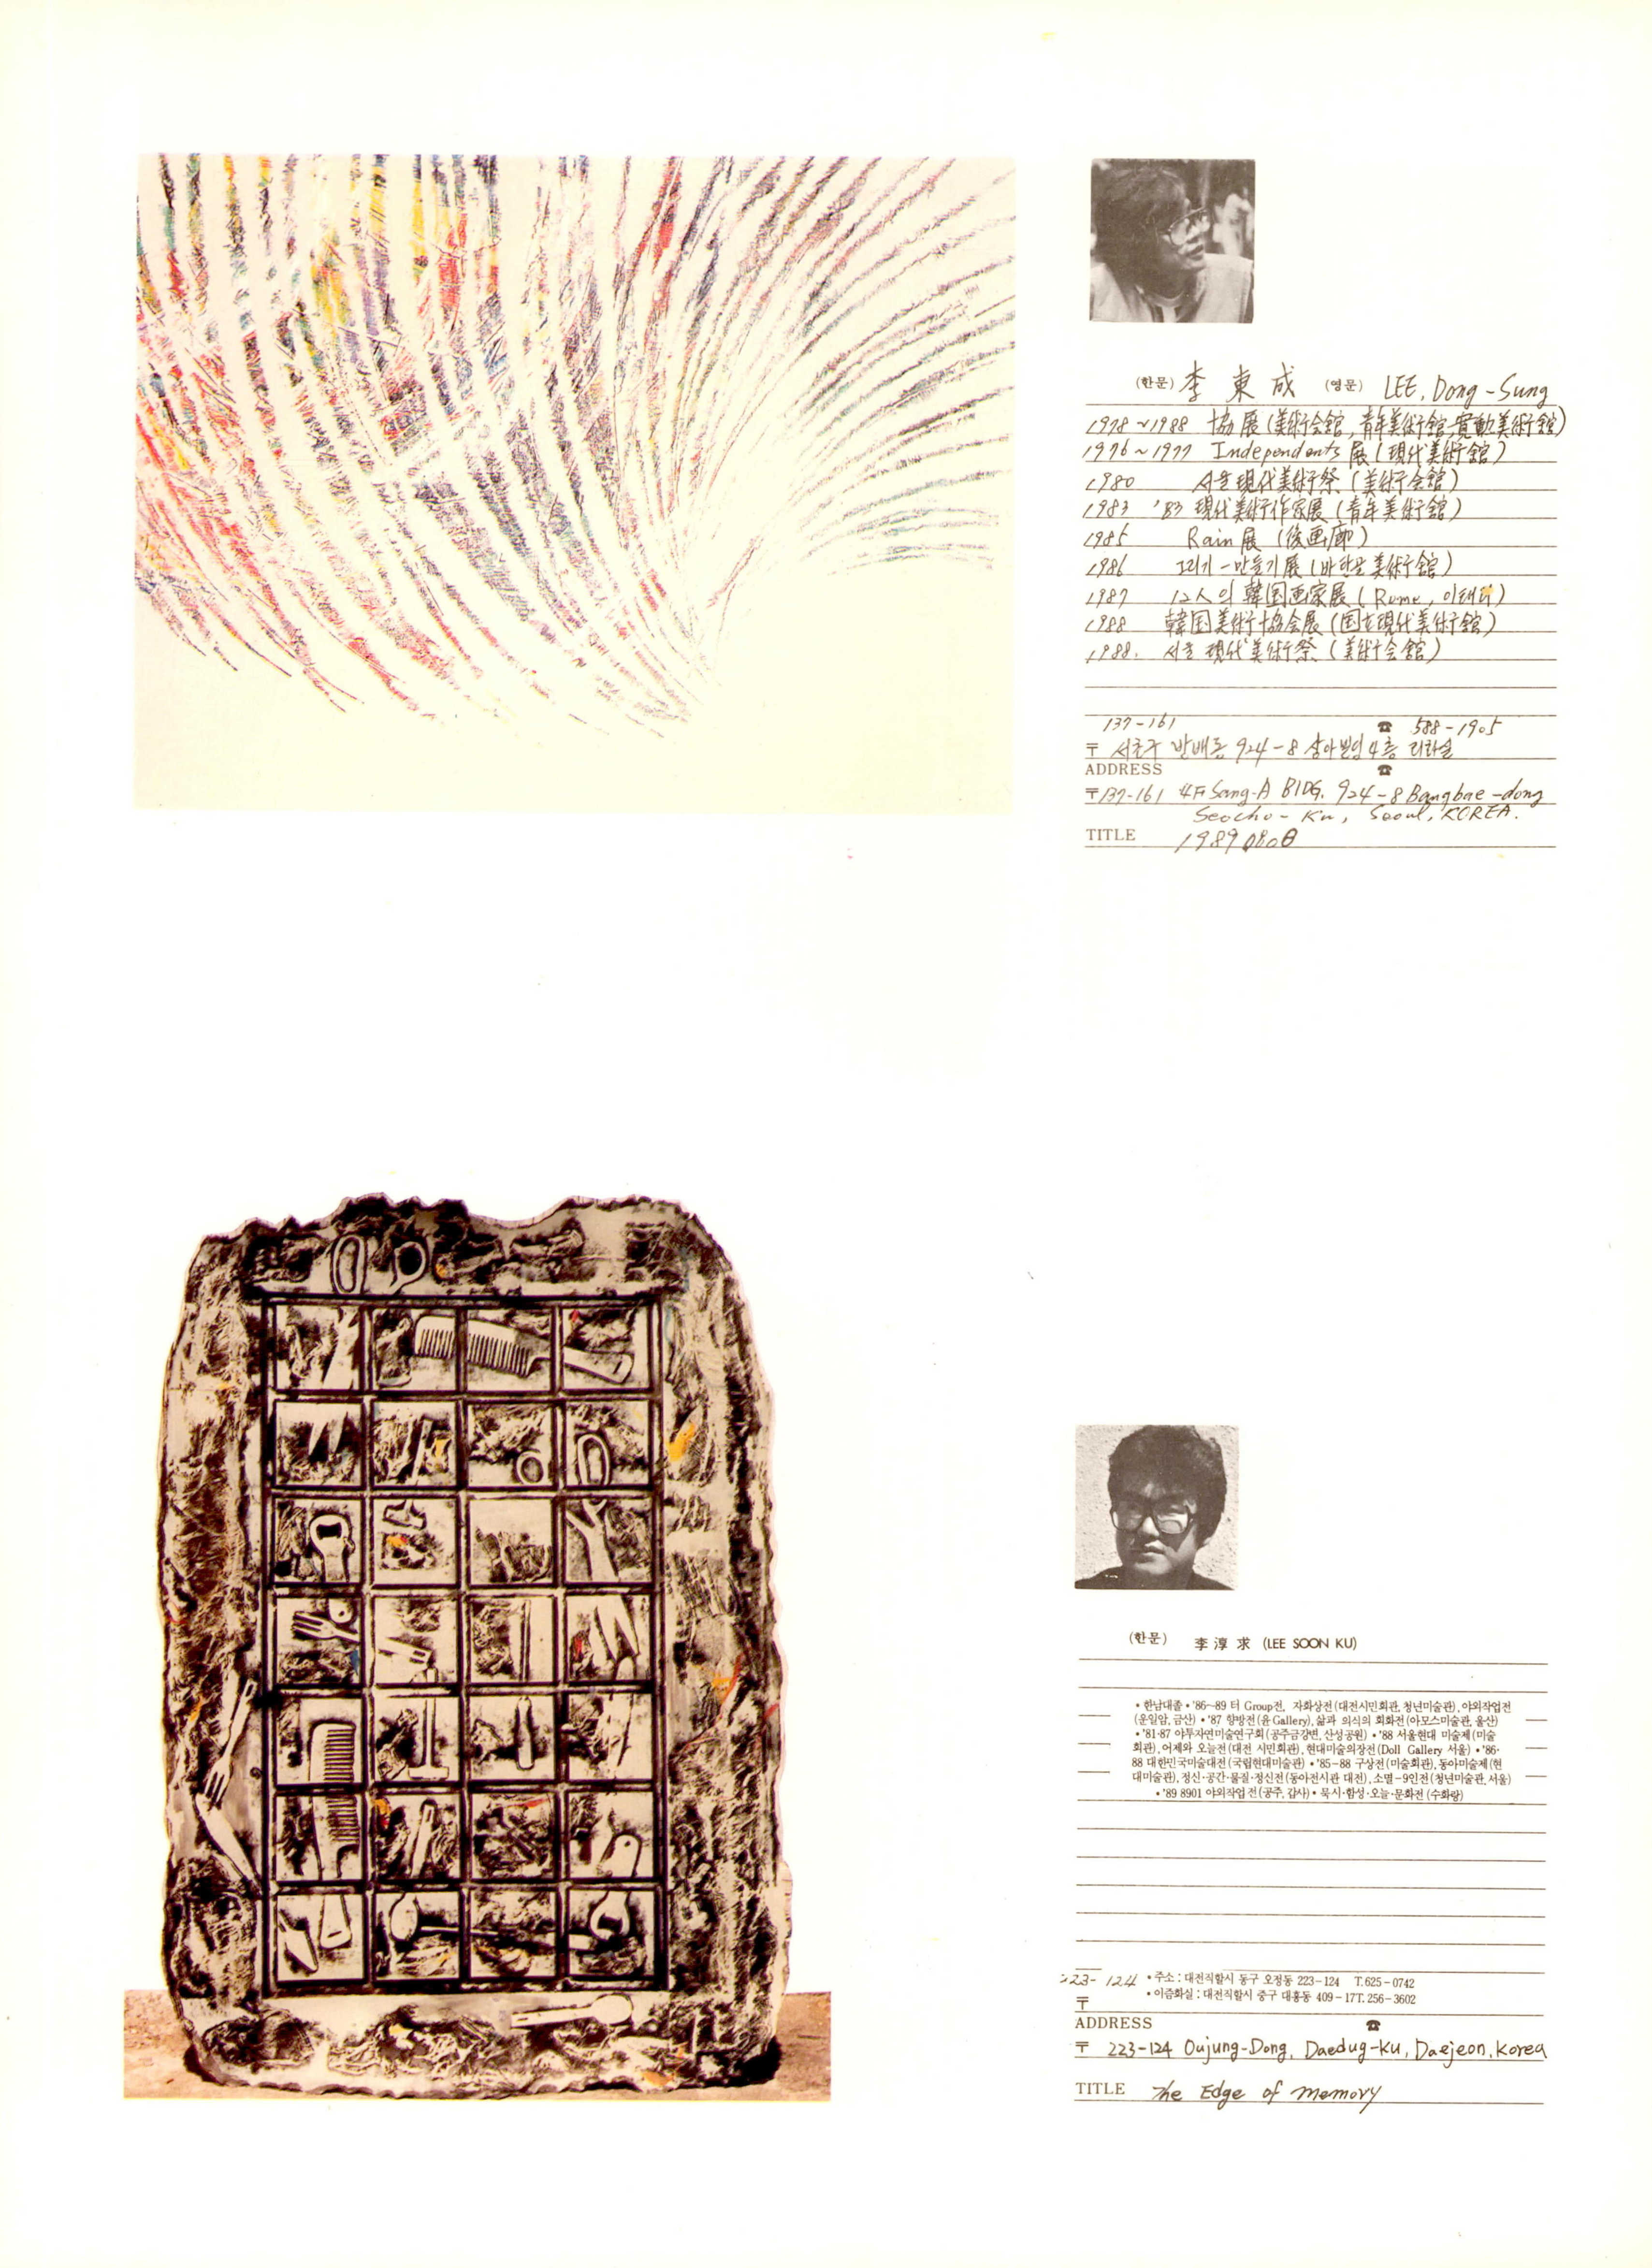 (한문) 李 東 成 (영문) LEE, Dong-Sung
1978~1988 協展 (美術会館, 青年美術館, 美術館)
1976~1977 Independants 展 (現代美術館)
1980 서울現代美術祭 (美術会館)
1983 '83 現代美術作家展 (青年美術館)
1985 Rain 展 (後画廊)
1986 그리기-만들기展 (바탕골美術館)
1987 12人의 韓国画家展 (Rome, 이태리)
1988 韓国美術協会展 (国立現代美術館)
1988. 서울 現代美術祭 (美術会館)
137-161 ☎ 588-1905
〒 서초구 방배동 924-8 상아빌딩 4층
ADDRESS ☎
〒137-161 4F Sang-A BLDG. 924-8 Bangbae-dong
Seocho-Ku, Seoul, KOREA.
TITLE 1989
(한문) 李 淳 求 (LEE SOON KU)
• 한남대졸 • '86~89 터 Group전, 자화상전(대전시민회관, 청년미술관), 야외작업전
(운일암, 금산) • '87 향방전(윤 Gallery), 삶과 의식의 회화전(아모스미술관, 울산)
• '81-87 야투자연미술연구회(공주금강변, 산성공원) • '88 서울현대 미술제(미술
회관), 어제와 오늘전(대전 시민회관), 현대미술의장전(Doll Gallery 서울) • '86-
88 대한민국미술대전(국립현대미술관) • '85-88 구상전(미술회관), 동아미술제(현
대미술관), 정신·공간·물질·정신전(동아전시관 대전), 소멸-9인전(청년미술관, 서울)
• '89 8901 야외작업전(공주, 갑사) • 묵시·함성·오늘·문화전(수화랑)
223-124 • 주소 : 대전직할시 동구 오정동 223-124 T.625-0742
• 이즘화실 : 대전직할시 중구 대흥동 409-17T. 256-3602
〒
ADDRESS ☎
〒 223-124 Oujung-Dong, Daedug-Ku, Daejeon, Korea
TITLE The Edge of memory